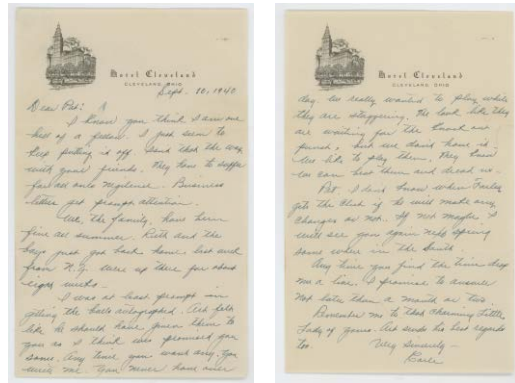 Hotel Cleveland
CLEVELAND, OHIO
Sept. 10, 1940
Dear Pat:
I know you think I am one
hell of a fellow. I just seem to
keep putting it off. And that the way
with your friends. They have to suffer
for all ones negligence. Business
letters get prompt attention.
We, the family, have been
fine all summer. Ruth and the
boys just got back home last week
from N.Y. were up there for about
eight weeks.
I was at least prompt in
getting the balls autographed.
like he should have given them to
you as I think was promised you
some. Any time you want any, you
write me. You never have over
Hotel Cleveland
CLEVELAND, OHIO
day. We really wanted to play while
they are staggering. They look like they
are waiting for the knock out
punch, but we don't have it.
We like to play them. They know
we can beat them and dread us.
Pat, I don't know when
gets the club if he will make any
changes or not. If not maybe I
will see you again next spring
some where in the South.
Any time you find the time drop
me a line. I promise to answer
not later than a month or two.
Remember me to that charming little
Lady of yours. Art sends his best regards
too.
Very Sincerely